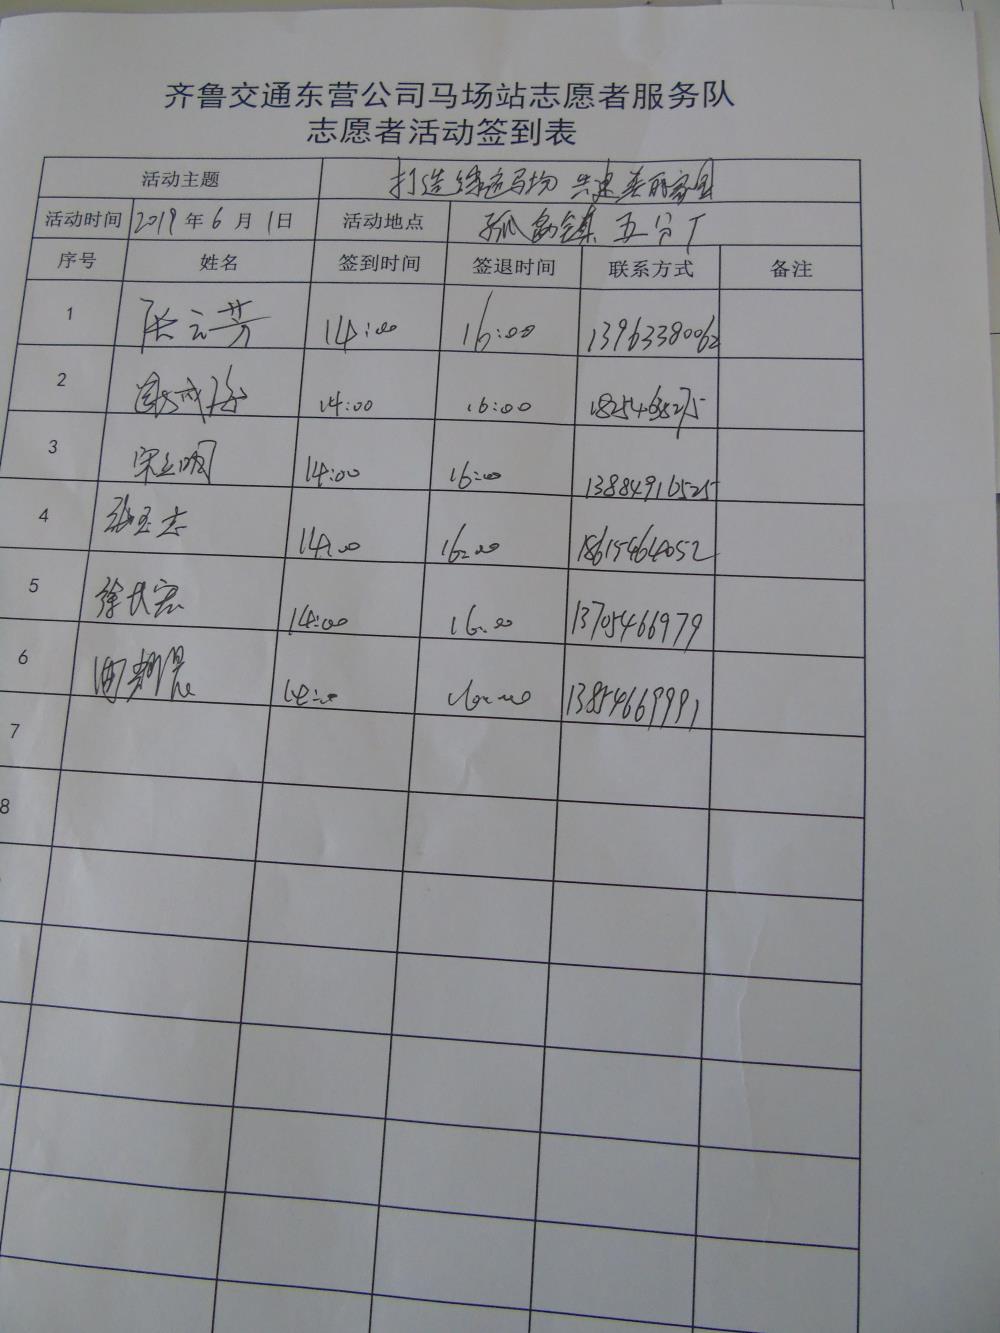 齐鲁交通东营公司马场站志愿者服务队
志愿者活动签到表
活动主题 打造绿色马场 共建美丽家园
活动时间 2019年6月1日 活动地点 孤岛镇 五分厂
序号 姓名 签到时间 签退时间 联系方式 备注
1 张云芳 14:00 16:00 13963380062
2 14:00 16:00
3 宋立明 14:00 16:00 13884916525
4 张玉志 14:00 16:00 18615464052
5 徐长宏 14:00 16:00 13705466979
6 14:00 16:00 13854669991
7
8